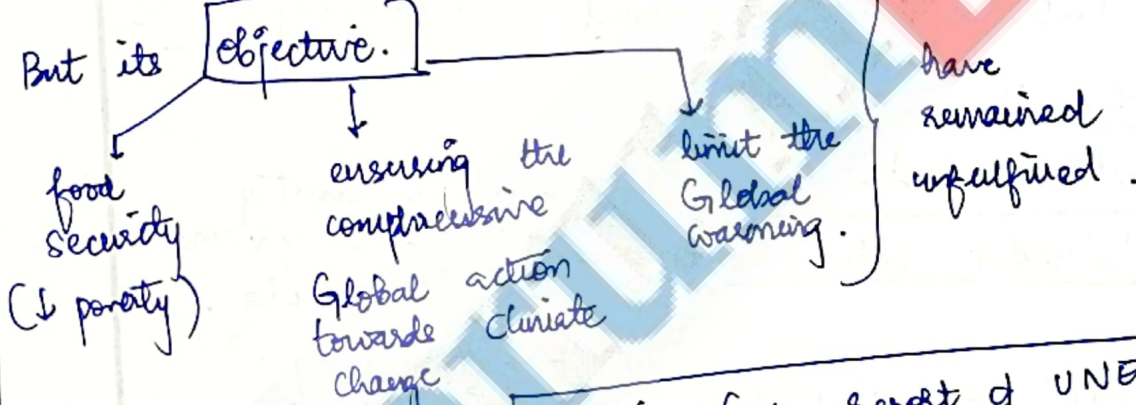 But its objective.
food
security
(↓ poverty)
ensuring the
comprehensive
Global action
towards climate
change
limit the
Global
warming.
have
remained
unfulfilled.
of UNE